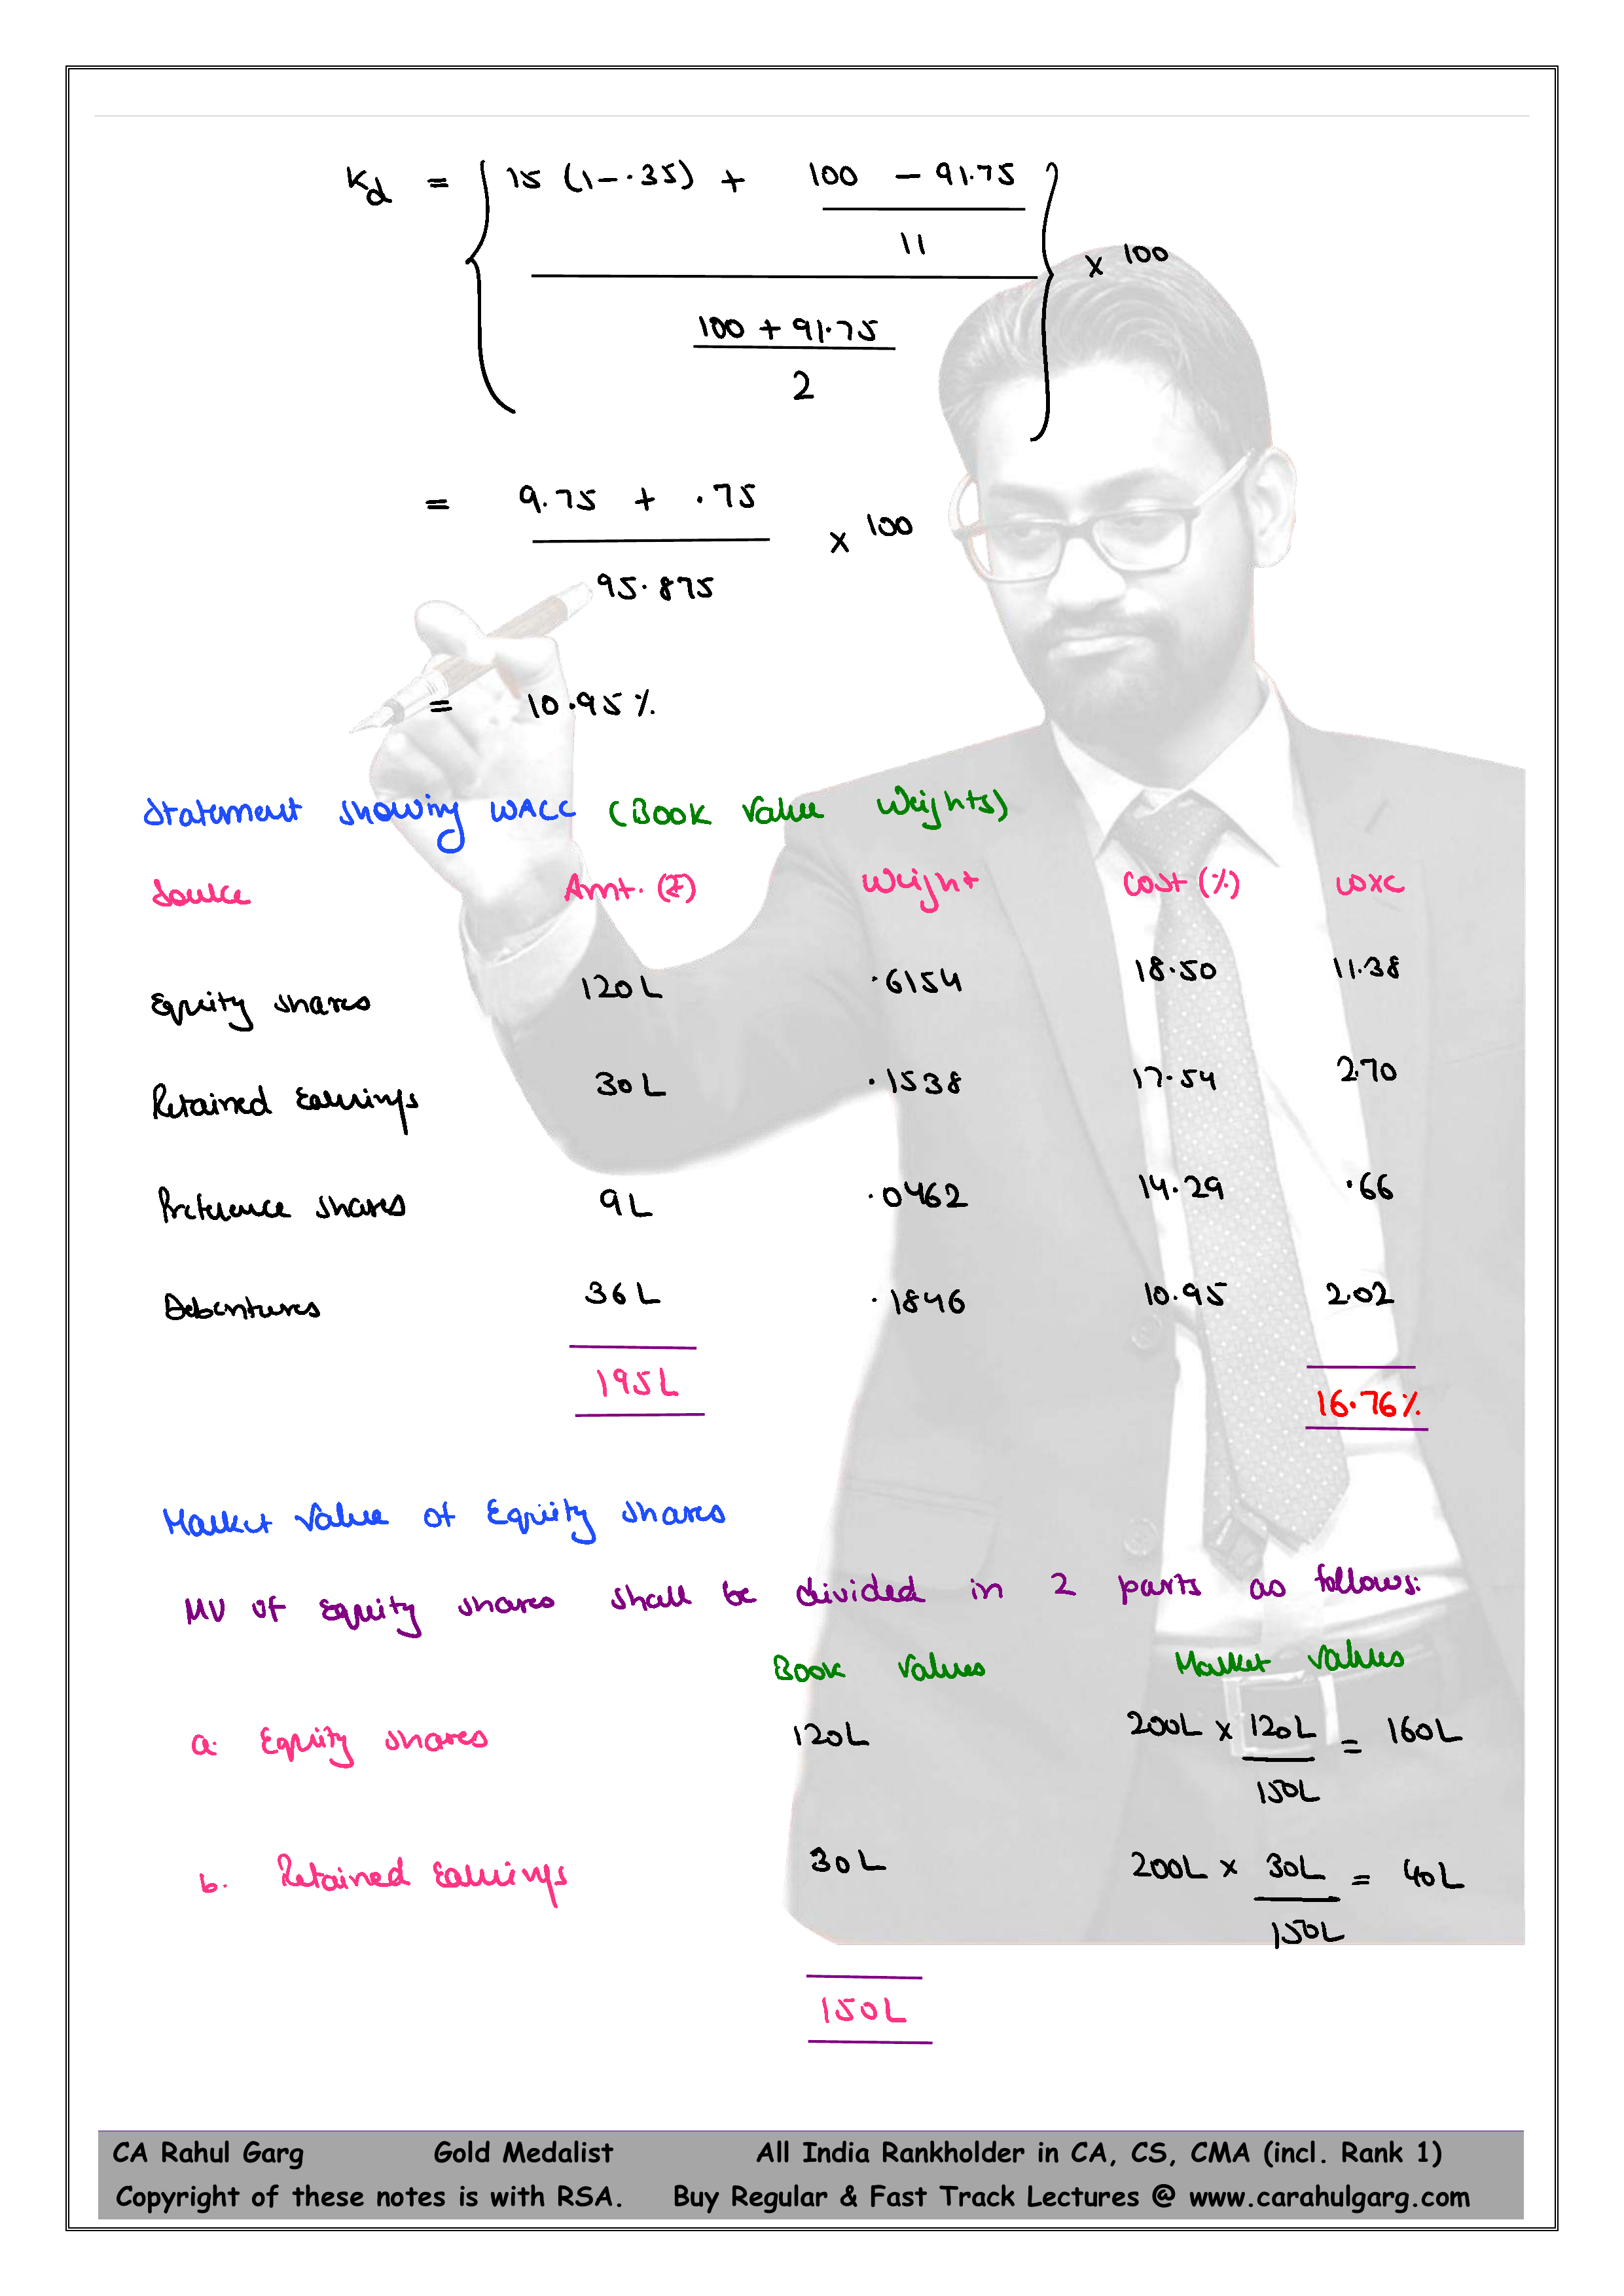 Kd = { 15 (1-.35) + 100 - 91.75
11
100 + 91.75
2 } x 100
= 9.75 + .75
95.875 x 100
= 10.95%
Statement showing WACC (Book Value Weights)
Source Amt. (₹) Weight Cost (%) WXC
Equity shares 120L .6154 18.50 11.38
Retained Earnings 30L .1538 17.54 2.70
Preference shares 9L .0462 14.29 .66
Debentures 36L .1846 10.95 2.02
195L 16.76%
Market Value of Equity shares
MV of Equity shares shall be divided in 2 parts as follows:
Book Values Market Values
a. Equity shares 120L 200L x 120L = 160L
150L
b. Retained Earnings 30L 200L x 30L = 40L
150L
150L
CA Rahul Garg Gold Medalist All India Rankholder in CA, CS, CMA (incl. Rank 1)
Copyright of these notes is with RSA. Buy Regular & Fast Track Lectures @ www.carahulgarg.com